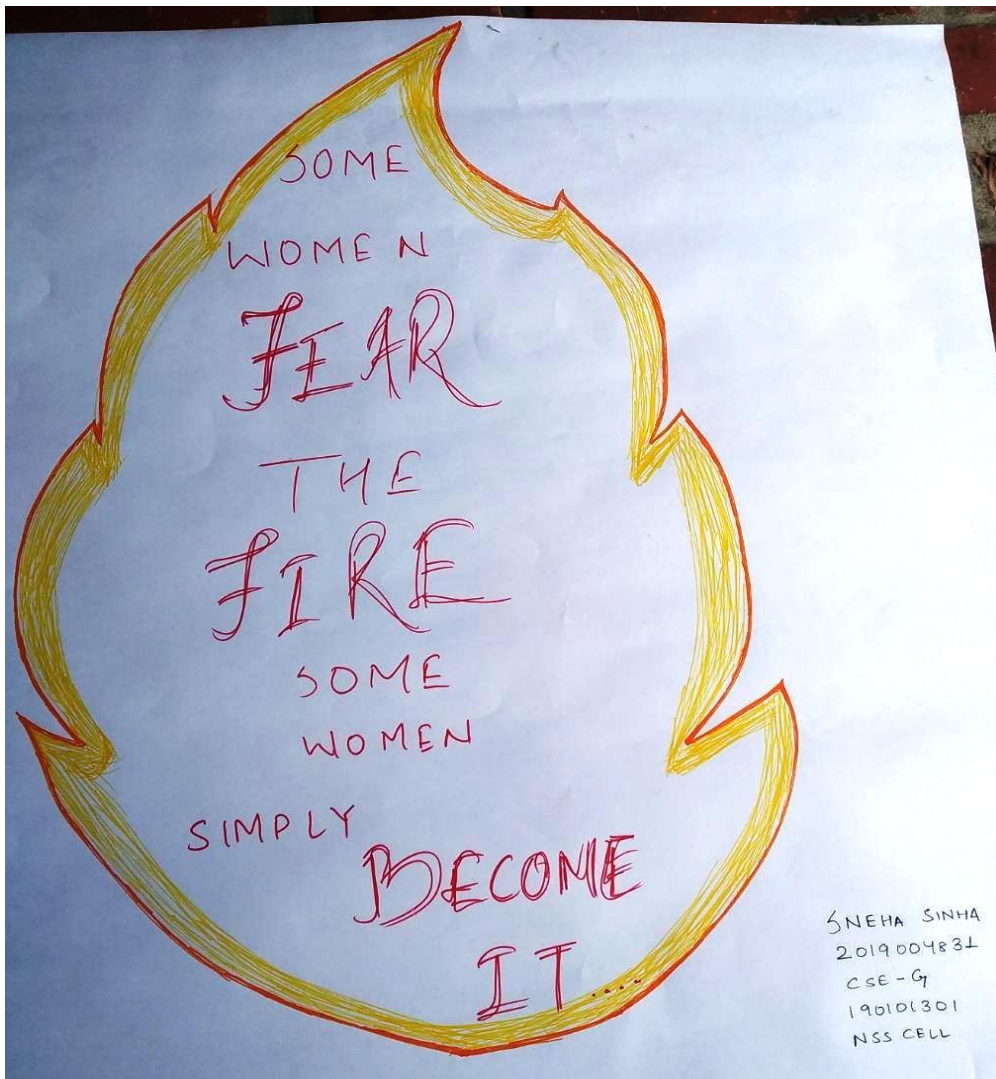 SOME
WOMEN
FEAR
THE
FIRE
SOME
WOMEN
SIMPLY
BECOME
IT....
SNEHA SINHA
2019004831
CSE-G
190101301
NSS CELL